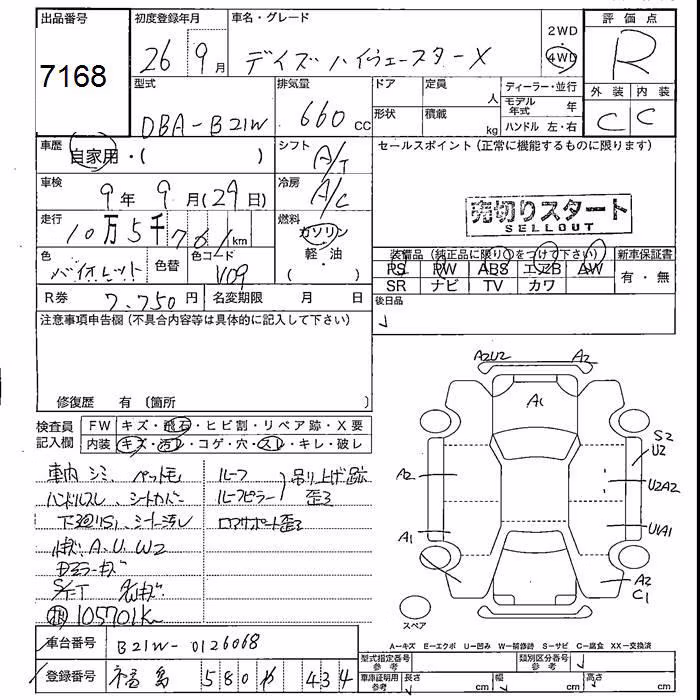 出品番号
7168
初度登録年月
26 9月
車名・グレード
デイズハイウェースターX
2WD
・
4WD
評価点
R
外装 内装
C C
型式
DBA-B21W
排気量
660cc
ドア
定員
人
形状
積載
kg
ディーラー・並行
モデル年式 年
ハンドル 左・右
車歴
自家用・( )
シフト
A/T
セールスポイント(正常に機能するものに限ります)
車検
9年 9月(29日)
冷房
A/C
売切りスタート
SELLOUT
走行
10万5千701km
燃料
ガソリン
・
軽・油
( )
色
バイオレット
色替
色コード
V09
装備品(純正品に限り○をつけて下さい)
新車保証書
PS PW ABS エアB AW
有・無
SR ナビ TV カワ
R券 7.750円
名変期限 月 日
後日品
注意事項申告欄(不具合内容等は具体的に記入して下さい)
修復歴 有〔箇所 〕
検査員記入欄
FW キズ・飛石・ヒビ割・リペア跡・X要
内装 キズ・汚れ・コゲ・穴・スレ・キレ・破レ
車内シミ、ペット毛
ハンドルスレ、シートカバー
A.U.W2
105701K
ルーフ
ルーフピラー
吊り上げ跡
歪ミ
A2U2 A2
A1
S2
U2
A2
U2A2
A1
U1A1
A2
C1
スペア
A-キズ E-エクボ U-凹み W-補修跡 S-サビ C-腐食 XX-交換済
車台番号 B21W-0126068
登録番号 福島 580 や 434
型式指定番号参考
類別区分番号参考
車庫証明用参考
長さ cm
幅 cm
高さ cm